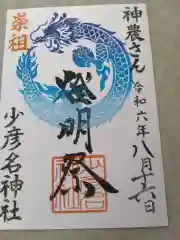 神農さん
令和六年八月十六日
崇祖
燈明祭
少彦名神社